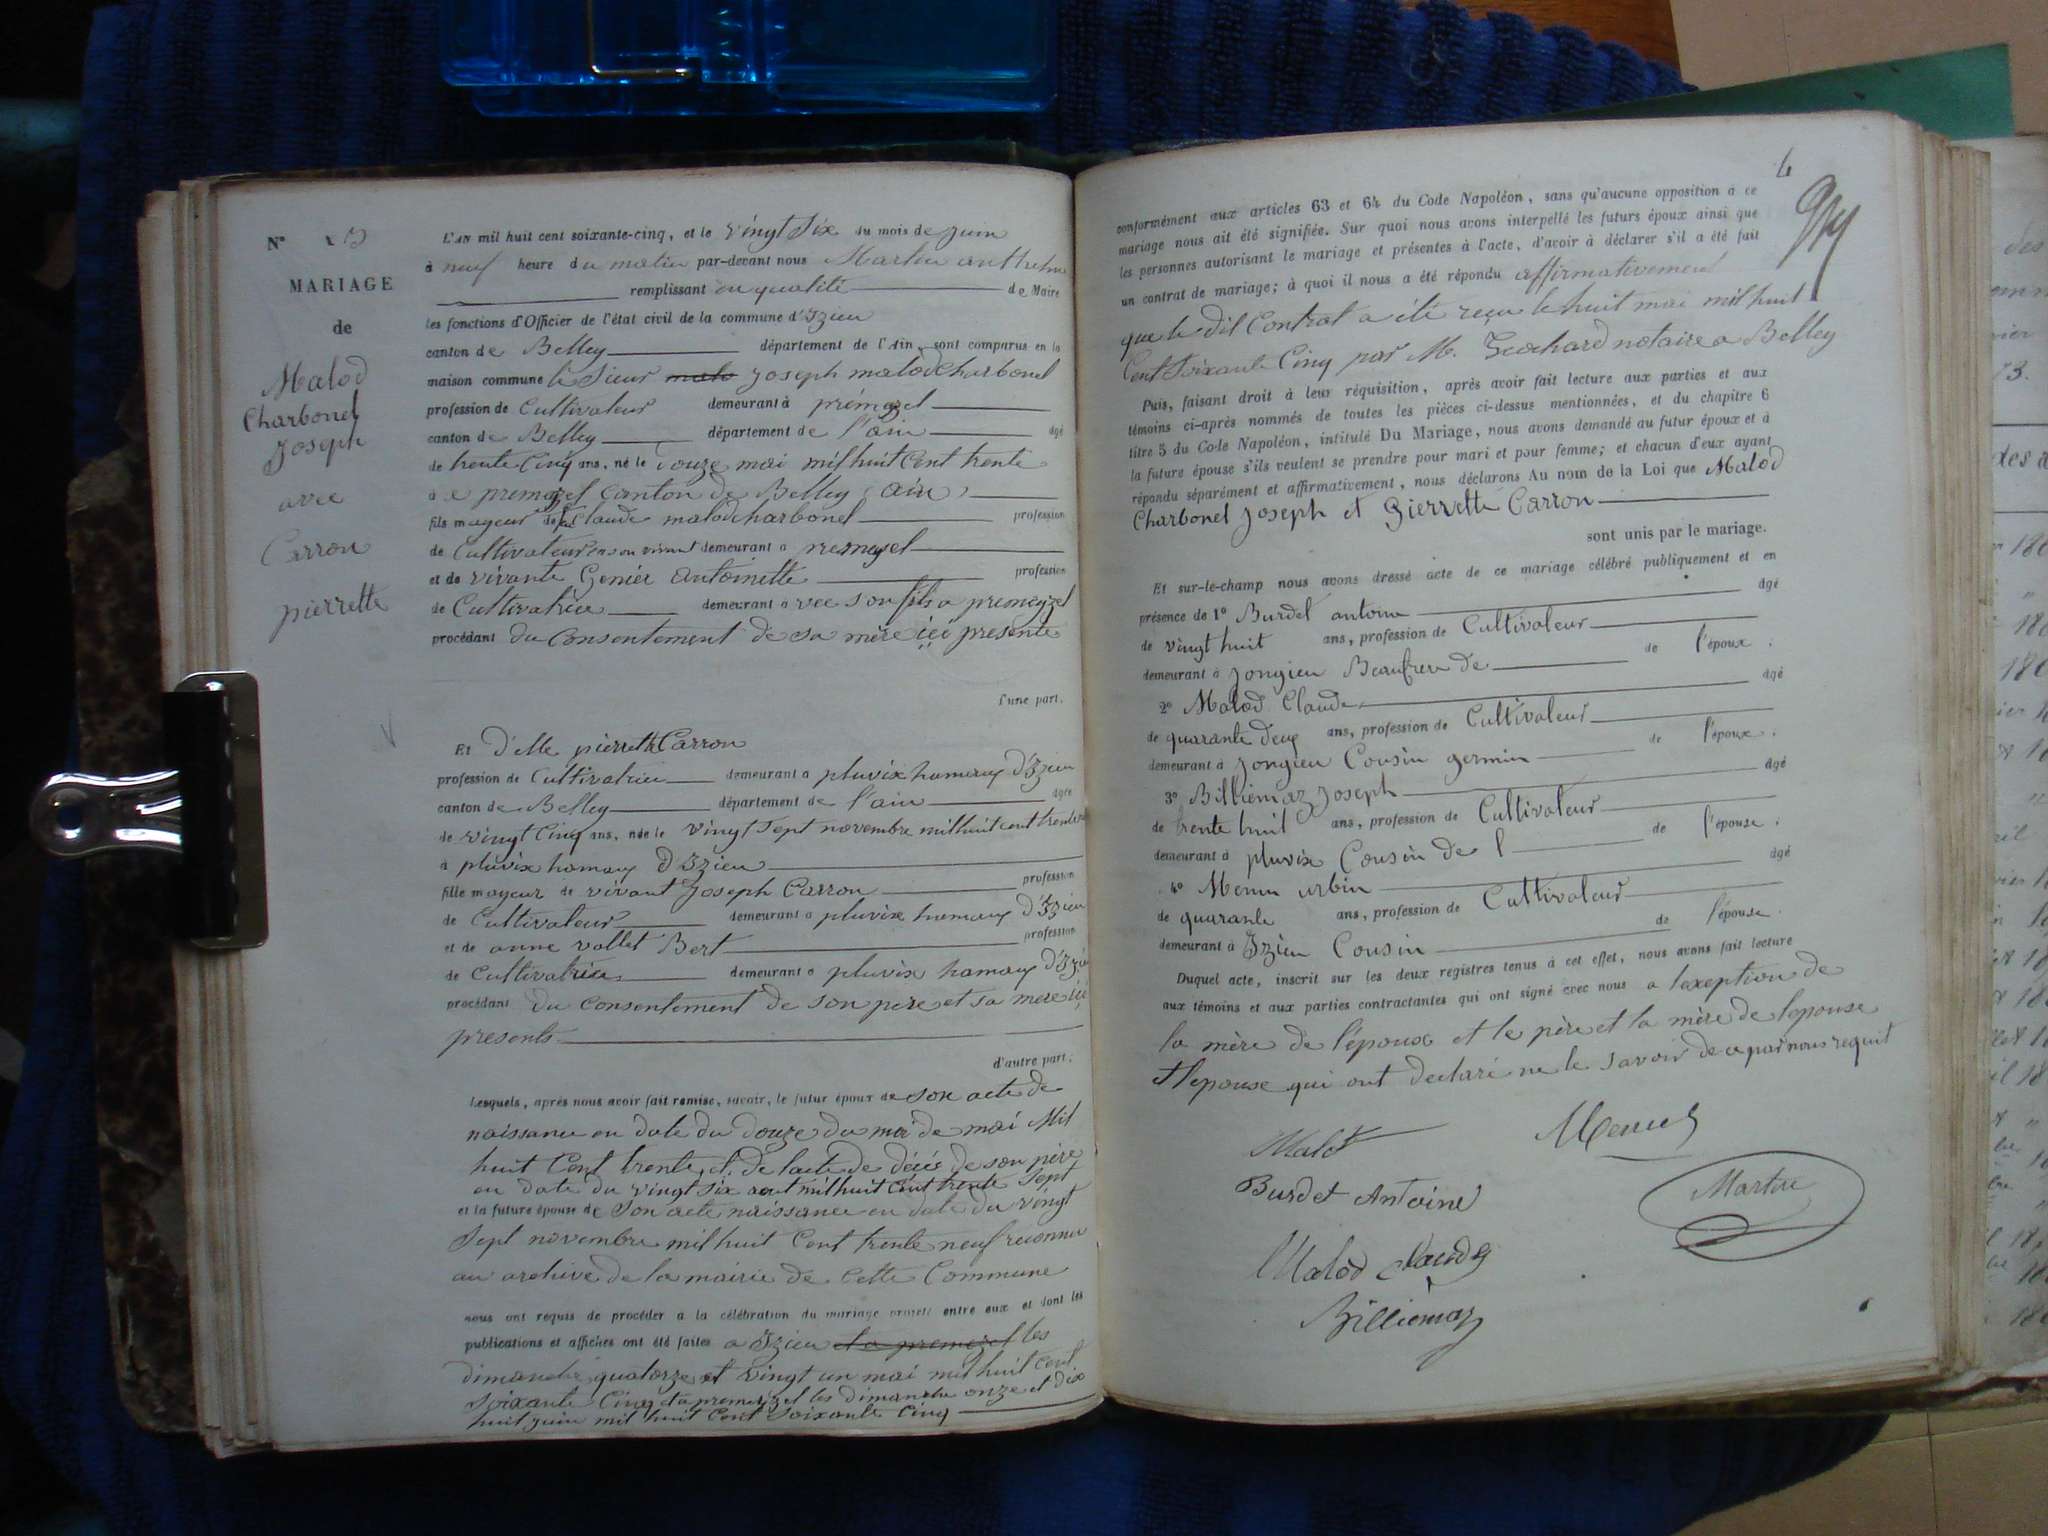 N°
MARIAGE
de
Malod
Charbonel
Joseph
avec
Carron
pierrette
L'AN mil huit cent soixante-cinq, et le vingt Six du mois de juin
à neuf heure du matin par-devant nous Martin anthelme
remplissant en qualité de Maire
les fonctions d'Officier de l'état civil de la commune d'Izieu
canton de Belley département de l'Ain, sont comparus en la
maison commune le Sieur malo Joseph malod Charbonel
profession de Cultivateur demeurant à prémezel
canton de Belley département de l'ain âgé
de trente Cinq ans, né le Douze mai mil huit Cent trente
à premezel Canton de Belley (ain)
fils mayeur de Claude malod charbonel profession
de Cultivateur en son vivant demeurant a premezel
et de vivante Genier antoinette profession
de Cultivatrice demeurant avec son fils a premeyzel
procédant du Consentement de sa mère ici presente
l'une part.
Et d'elle pierrette Carron
profession de Cultivatrice demeurant a pluvix hamaux d'Izieu
canton de Belley département de l'ain âgée
de vingt Cinq ans, née le vingt Sept novembre mil huit cent trente
à pluvix hamaux d'Izieu
fille mayeur de vivant Joseph Carron profession
de Cultivateur demeurant a pluvix hamaux d'Izieu
et de anne vallet Bert profession
de Cultivatrice demeurant a pluvix hamaux d'Izieu
procédant du consentement de son pere et sa mere ici
presents
d'autre part;
Lesquels, après nous avoir fait remise, savoir, le futur époux de son acte de
naissance en date du douze du moi de mai Mil
huit Cent trente et de lacte de décès de son père
en date du vingt six aout mil huit Cent trente Sept
et la future épouse de Son acte naissance en date du vingt
Sept novembre mil huit Cent trente neuf reconnu
au archive de la mairie de Cette Commune
nous ont requis de procéder à la célébration du mariage projeté entre eux et dont les
publications et affiches ont été faites a Izieu et a premezel les
dimanche quatorze et vingt un mai mil huit Cent
soixante Cinq et a premeyzel les dimanche onze et dix
huit juin mil huit Cent Soixante Cinq
conformément aux articles 63 et 64 du Code Napoléon, sans qu'aucune opposition à ce
mariage nous ait été signifiée. Sur quoi nous avons interpellé les futurs époux ainsi que
les personnes autorisant le mariage et présentes à l'acte, d'avoir à déclarer s'il a été fait
un contrat de mariage; à quoi il nous a été répondu affirmativement
que le dit Contrat a été reçu le huit mai mil huit
Cent Soixante Cinq par M. notaire a Belley
Puis, faisant droit à leur réquisition, après avoir fait lecture aux parties et aux
témoins ci-après nommés de toutes les pièces ci-dessus mentionnées, et du chapitre 6
titre 5 du Code Napoléon, intitulé Du Mariage, nous avons demandé au futur époux et à
la future épouse s'ils veulent se prendre pour mari et pour femme; et chacun d'eux ayant
répondu séparément et affirmativement, nous déclarons Au nom de la Loi que Malod
Charbonel Joseph et Pierrette Carron
sont unis par le mariage.
Et sur-le-champ nous avons dressé acte de ce mariage célébré publiquement et en
présence de 1° Burdet antoine âgé
de vingt huit ans, profession de Cultivateur
demeurant à Jongieu Beaufrere de de l'époux.
2° Malod Claude âgé
de quarante deux ans, profession de Cultivateur
demeurant à Jongieu Cousin germin de l'époux.
3° Billiemaz Joseph âgé
de trente huit ans, profession de Cultivateur
demeurant à pluvix Cousin de l de l'épouse.
4° urbin âgé
de quarante ans, profession de Cultivateur
demeurant à Izieu Cousin de l'épouse.
Duquel acte, inscrit sur les deux registres tenus à cet effet, nous avons fait lecture
aux témoins et aux parties contractantes qui ont signé avec nous a lexeption de
la mère de l'époux et le père et la mère de lepouse
et lepouse qui ont declaré ne le savoir de ce par nous requit
Malod
Burdet Antoine
Martin
Malod Claude
Billiemaz